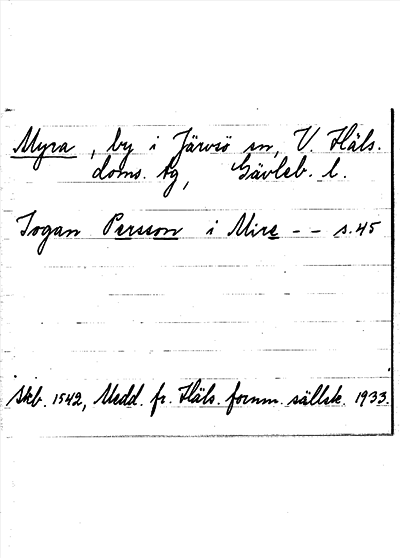 Myra, by i Järvsö sn, V. Häls.
doms. tg, Gävleb. l.
Jogan Persson i Mire - - s. 45
Skb. 1542, Medd. fr. Häls. fornm. sällsk. 1933.